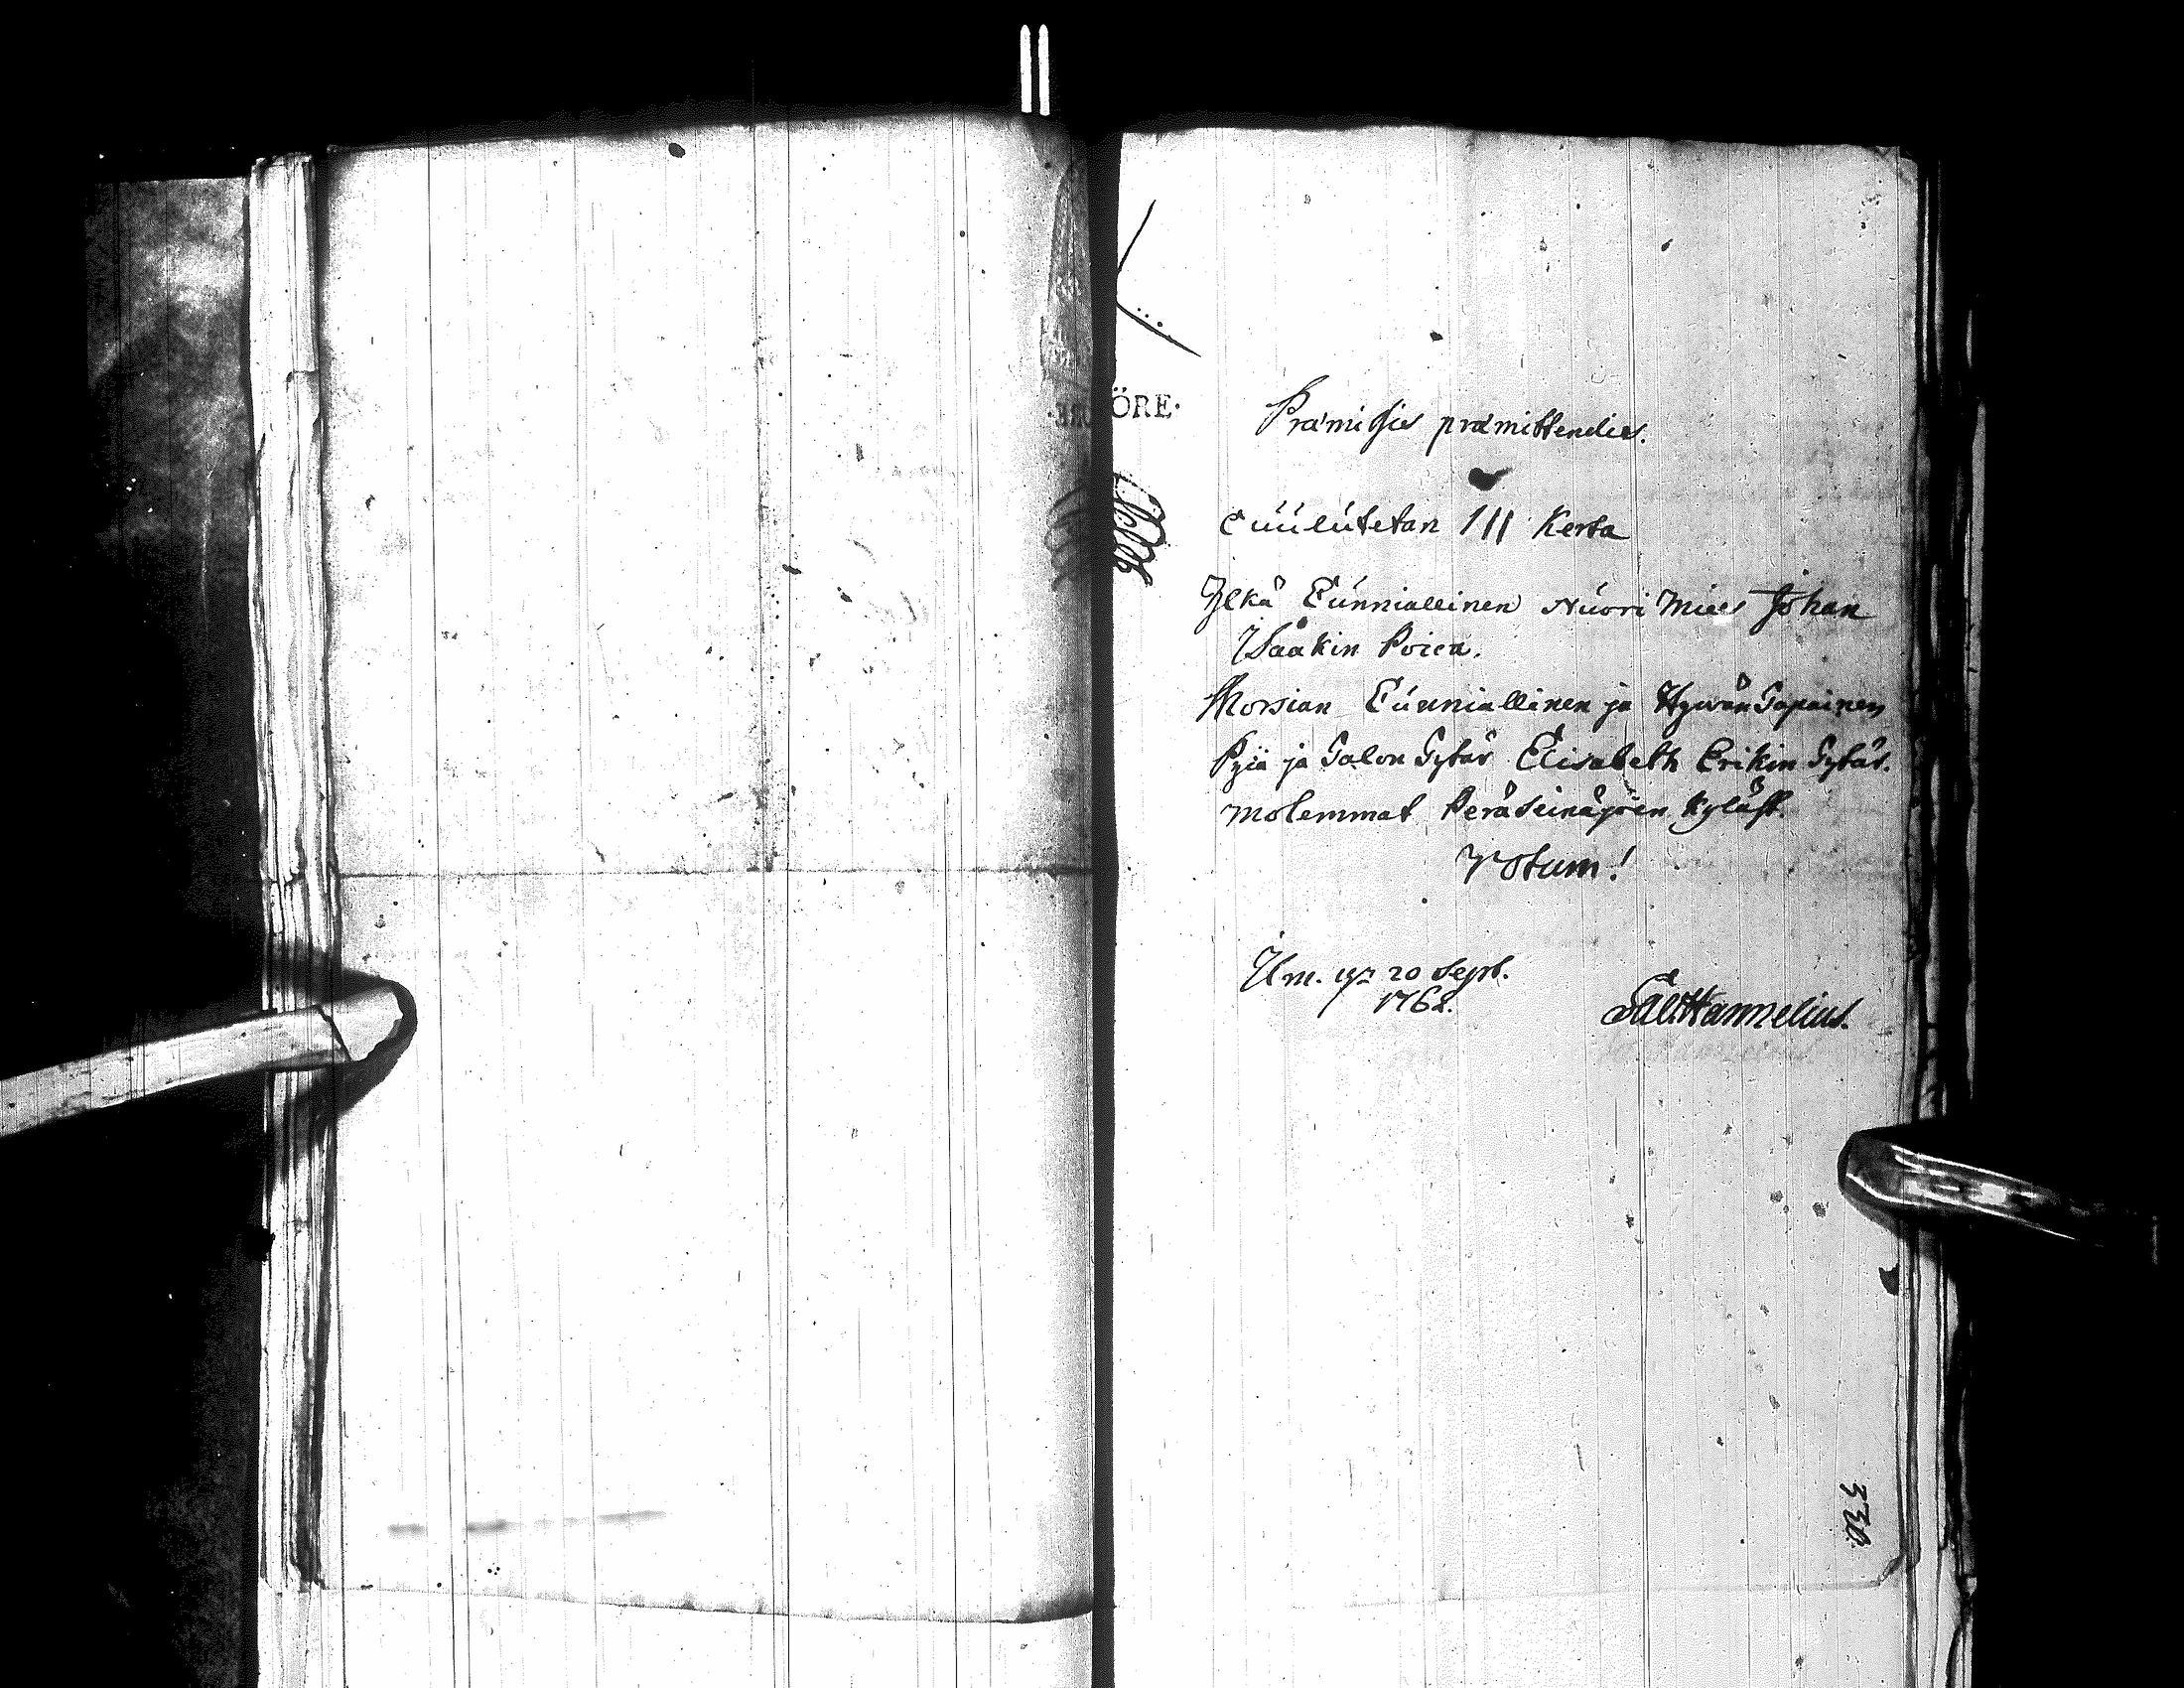 ÖRE.
Præmissis præmittendis.
Cuulutetan III Kerta
Ylkä Cunniallinen Nuori Mies Johan
Isaakin Poica.
Morsian Cunniallinen ja Hywän Tapainen
Pyia ja Talon Tytär Elisabeth Erikin Tytär.
Molemmat Peräseinäjoen kyläst.
Votum!
Ilm. 20 Sept.
1762.
Salt Hannelius.
330.